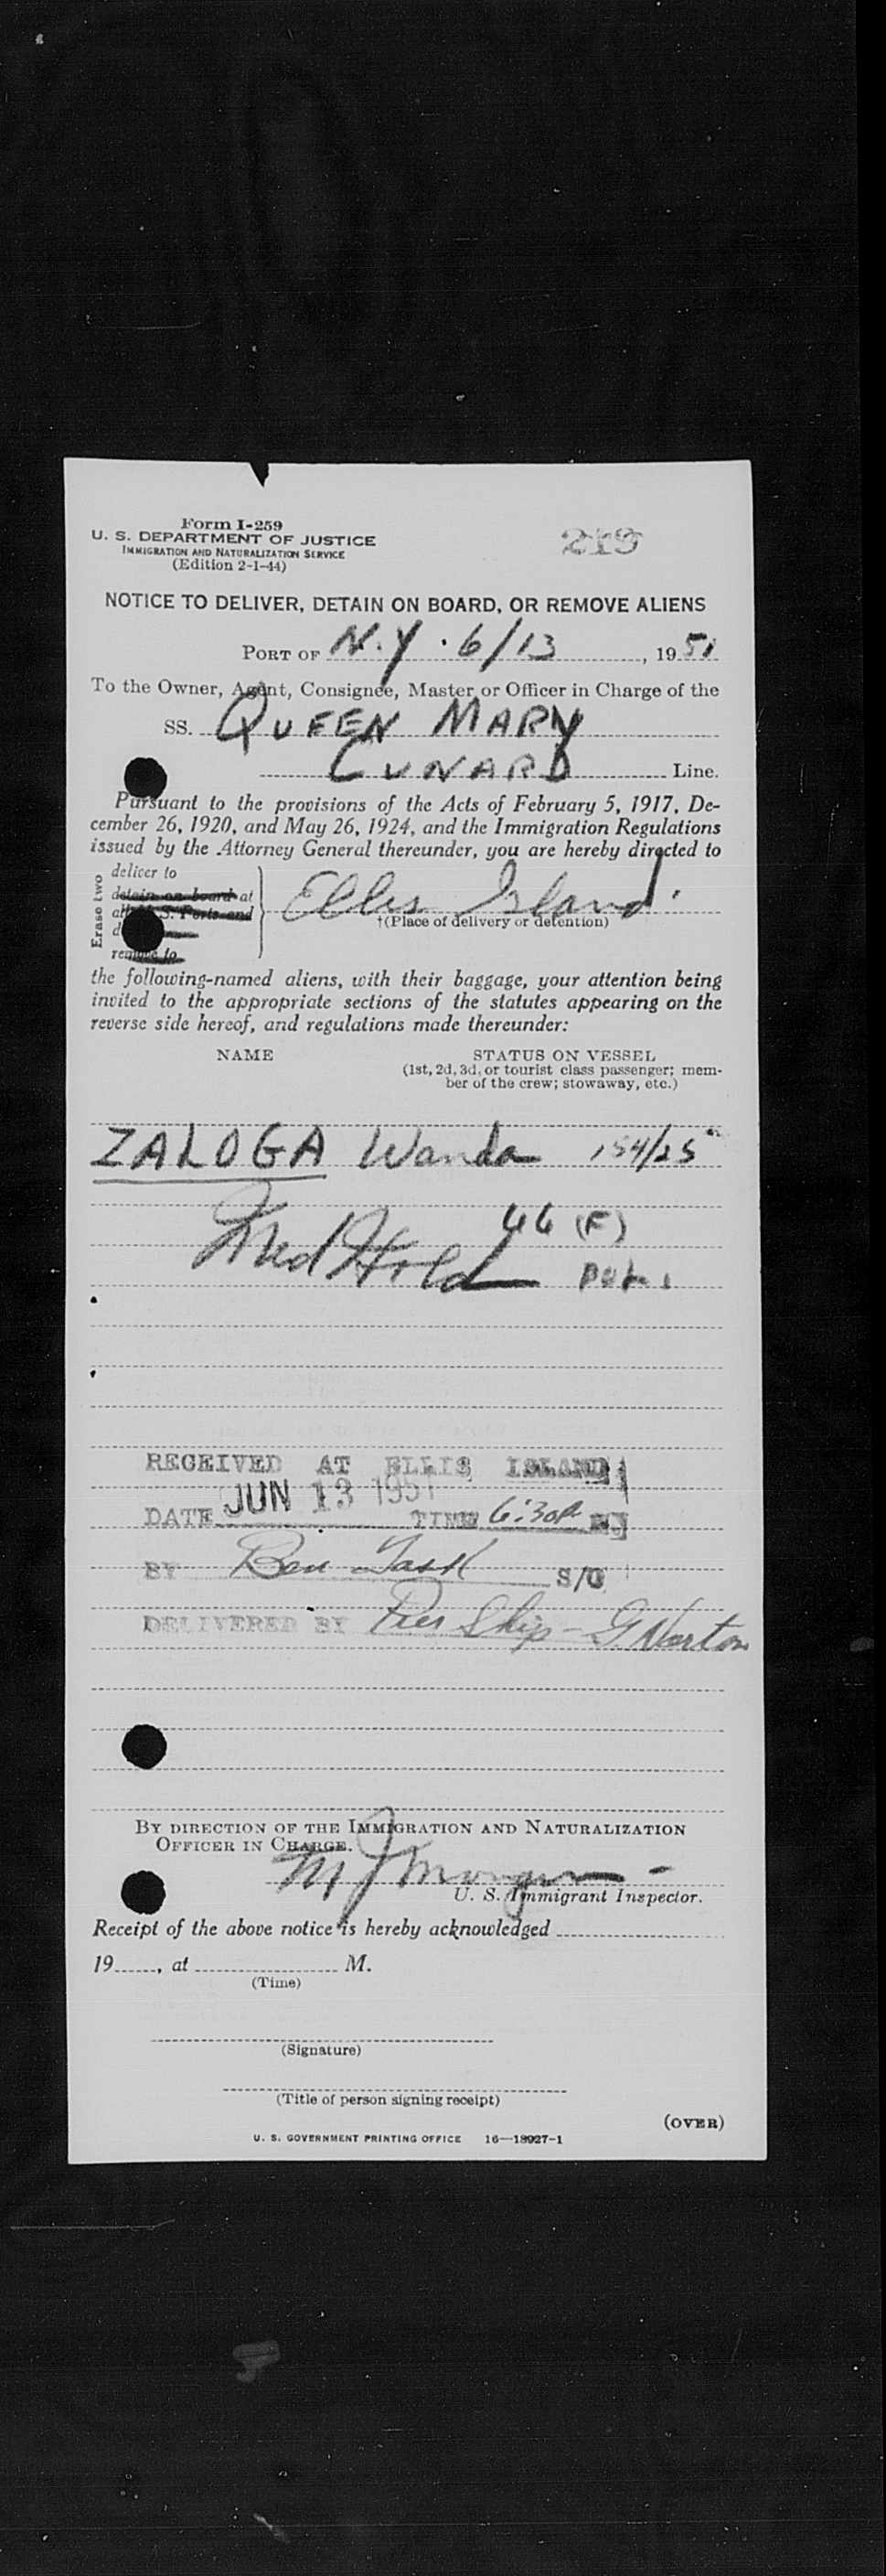 Form I-259
U. S. DEPARTMENT OF JUSTICE
IMMIGRATION AND NATURALIZATION SERVICE
(Edition 2-1-44)
219
NOTICE TO DELIVER, DETAIN ON BOARD, OR REMOVE ALIENS
PORT OF N.Y. 6/13, 1951
To the Owner, Agent, Consignee, Master or Officer in Charge of the
SS. QUEEN MARY
CUNARD Line.
Pursuant to the provisions of the Acts of February 5, 1917, De-
cember 26, 1920, and May 26, 1924, and the Immigration Regulations
issued by the Attorney General thereunder, you are hereby directed to
Erase two
deliver to
detain on board at
all U. S. Ports and
remove to
Ellis Island.
†(Place of delivery or detention)
the following-named aliens, with their baggage, your attention being
invited to the appropriate sections of the statutes appearing on the
reverse side hereof, and regulations made thereunder:
NAME STATUS ON VESSEL
(1st, 2d, 3d, or tourist class passenger; mem-
ber of the crew; stowaway, etc.)
ZALOGA Wanda 154/25
46 (F)
Med Hold
RECEIVED AT ELLIS ISLAND
DATE JUN 13 1951 TIME 6:30P M
BY Ben S/O
DELIVERED BY Pier Ship - G Norton
BY DIRECTION OF THE IMMIGRATION AND NATURALIZATION
OFFICER IN CHARGE.
M J
U. S. Immigrant Inspector.
Receipt of the above notice is hereby acknowledged
19......, at .................... M.
(Time)
(Signature)
(Title of person signing receipt)
(OVER)
U. S. GOVERNMENT PRINTING OFFICE 16—18927-1